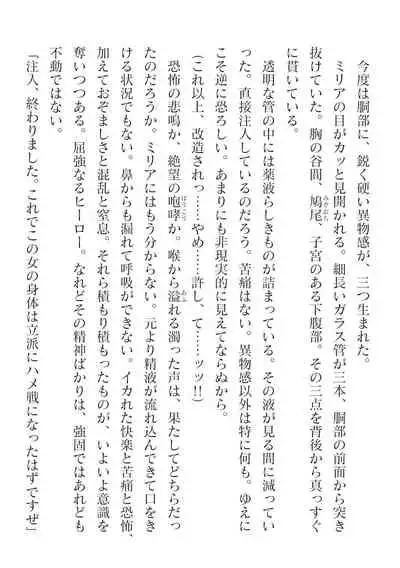 今度は胴部に、鋭く硬い異物感が、三つ生まれた。
ミリアの目がカッと見開かれる。細長いガラス管が三本、胴部の前面から突き
抜けていた。胸の谷間、鳩尾、子宮のある下腹部。その三点を背後から真っすぐ
に貫いている。
透明な管の中には薬液らしきものが詰まっている。その液が見る間に減ってい
った。直接注入しているのだろう。苦痛はない。異物感以外は特に何も。ゆえに
こそ逆に恐ろしい。あまりにも非現実的に見えてならぬから。
（これ以上、改造されっ……やめ……許し、て……ッッ!!）
恐怖の悲鳴か、絶望の咆哮か。喉から溢れる濁った声は、果たしてどちらだっ
たのだろうか。ミリアにはもう分からない。元より精液が流れ込んできて口をき
ける状況でもない。鼻からも漏れて呼吸ができない。イカれた快楽と苦痛と恐怖、
加えておぞましさと混乱と窒息。それら積もり積もったものが、いよいよ意識を
奪いつつある。屈強なるヒーロー。なれどその精神ばかりは、強固ではあれども
不動ではない。
「注入、終わりました。これでこの女の身体は立派にハメ戦になったはずですぜ」